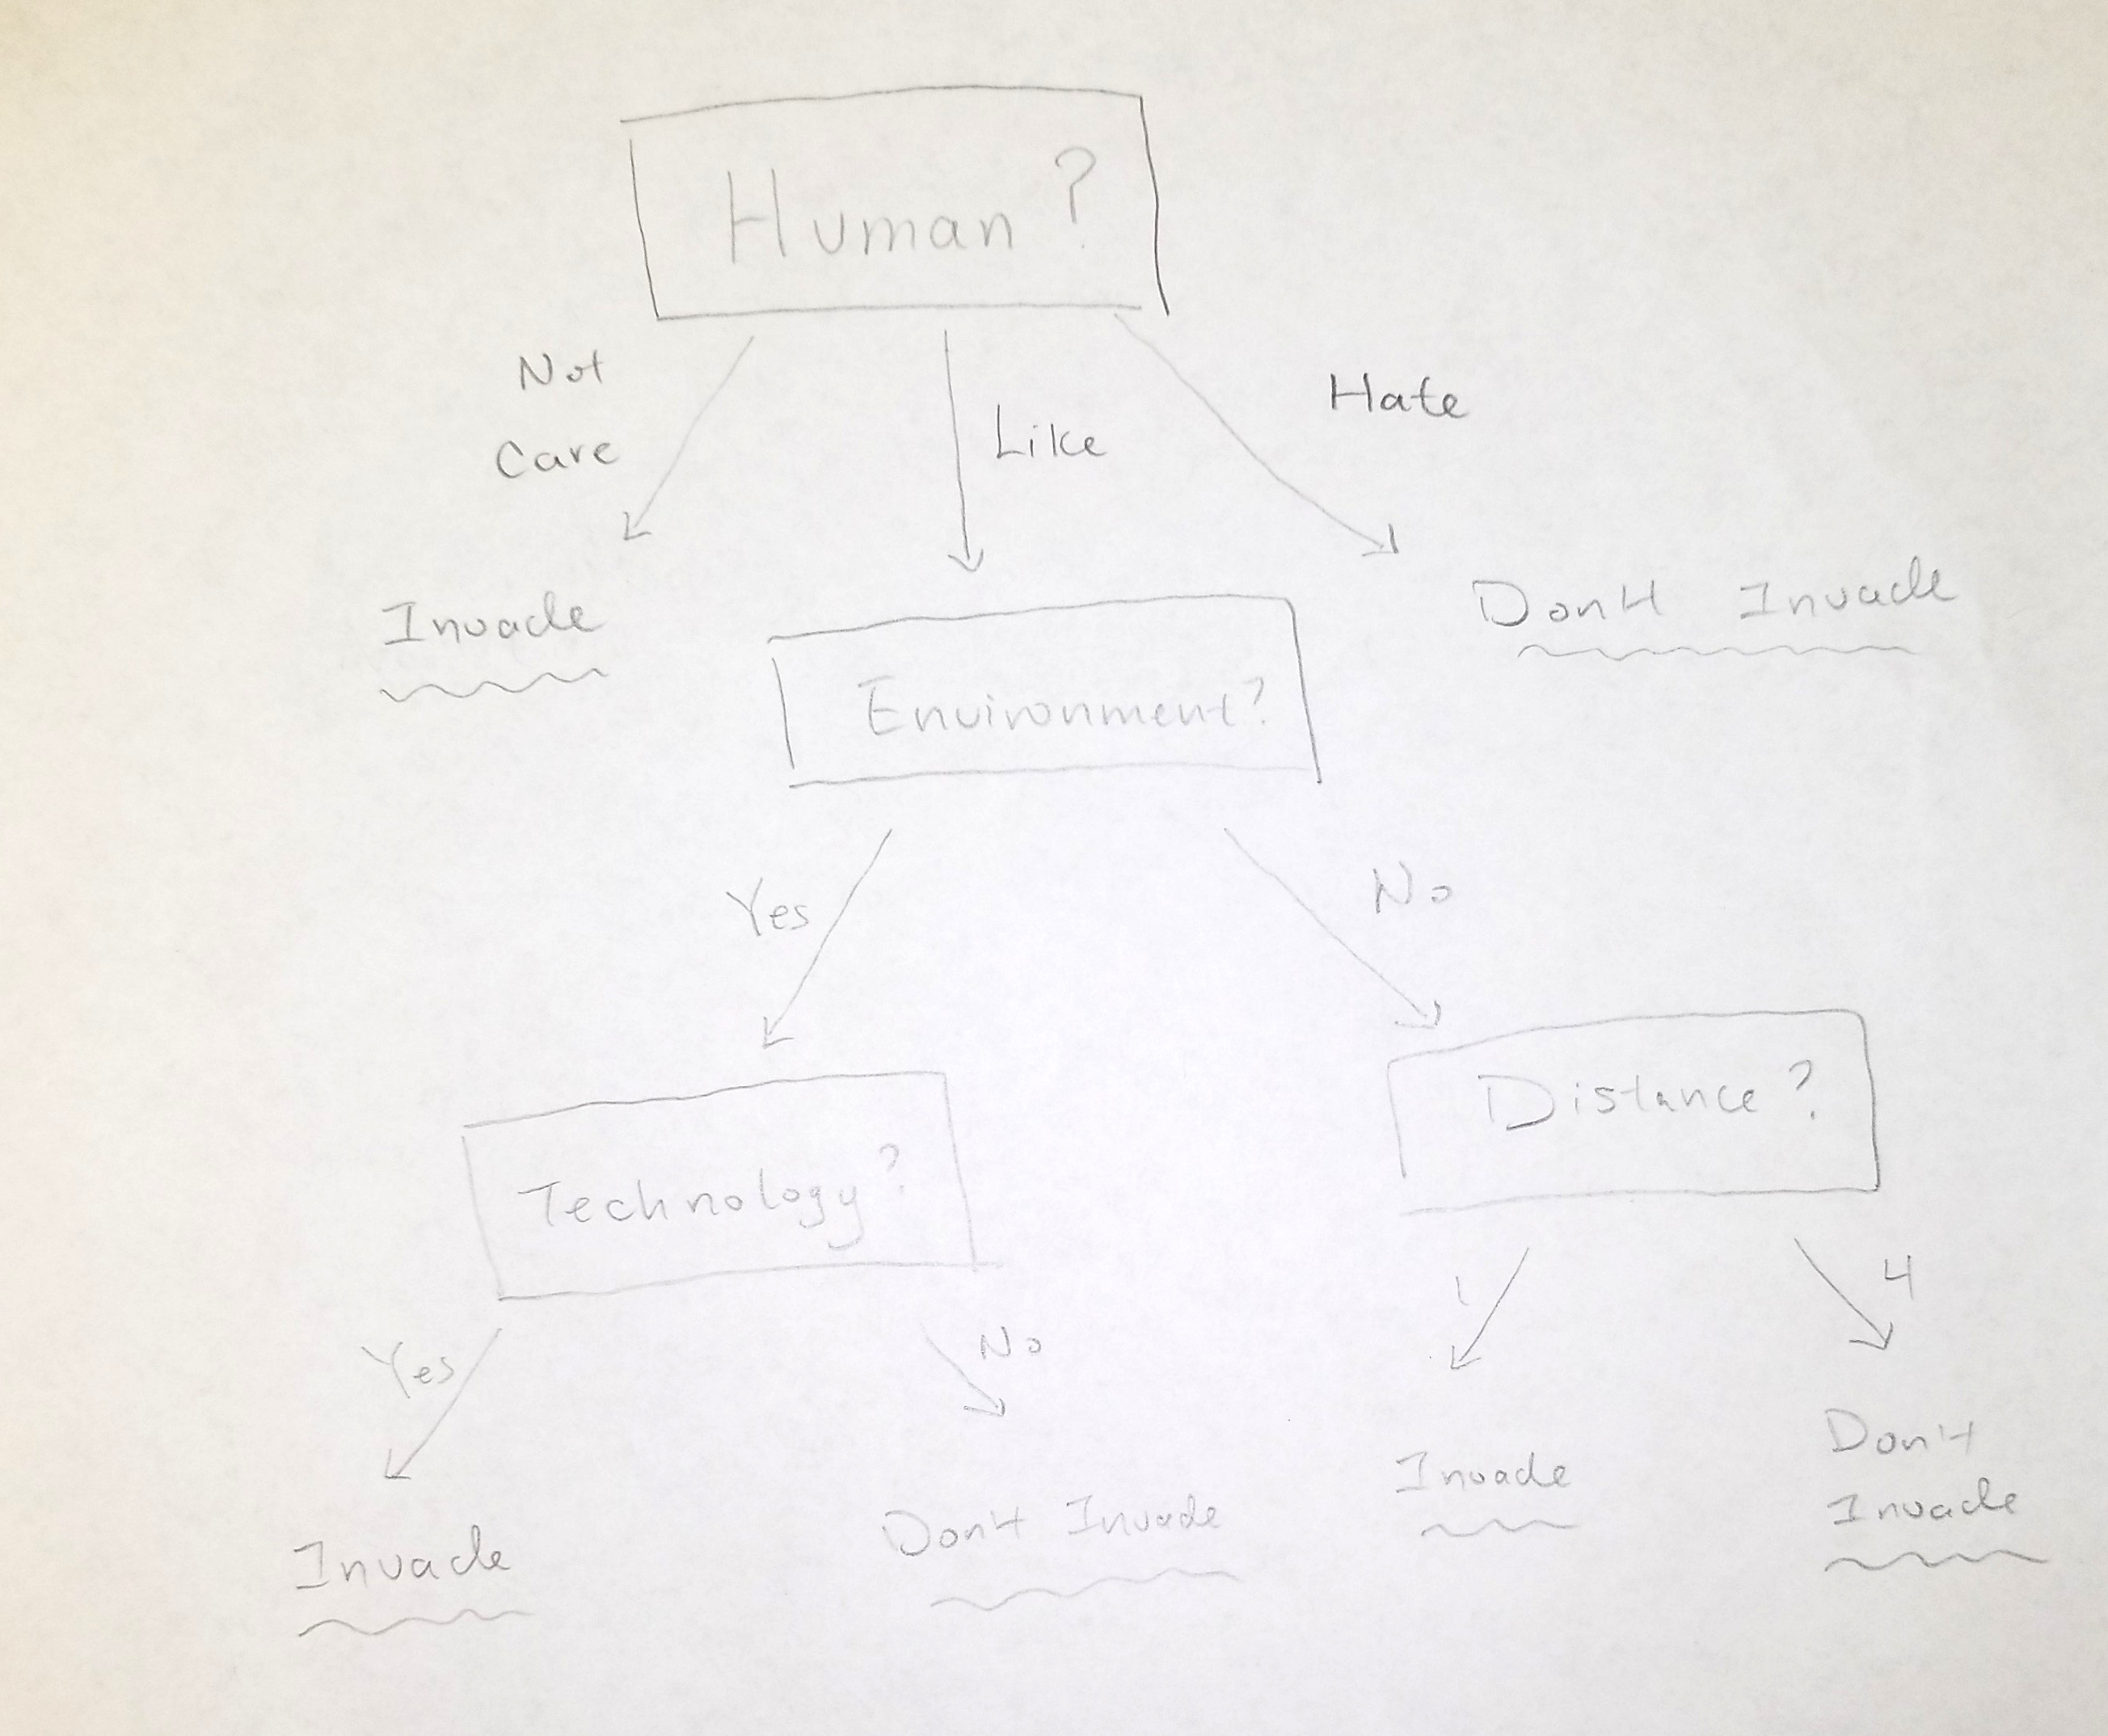 Human?
Not
Care
Like
Hate
Invade
Don't Invade
Environment?
Yes
No
Technology?
Distance?
Yes
No
1
4
Invade
Don't Invade
Invade
Don't
Invade